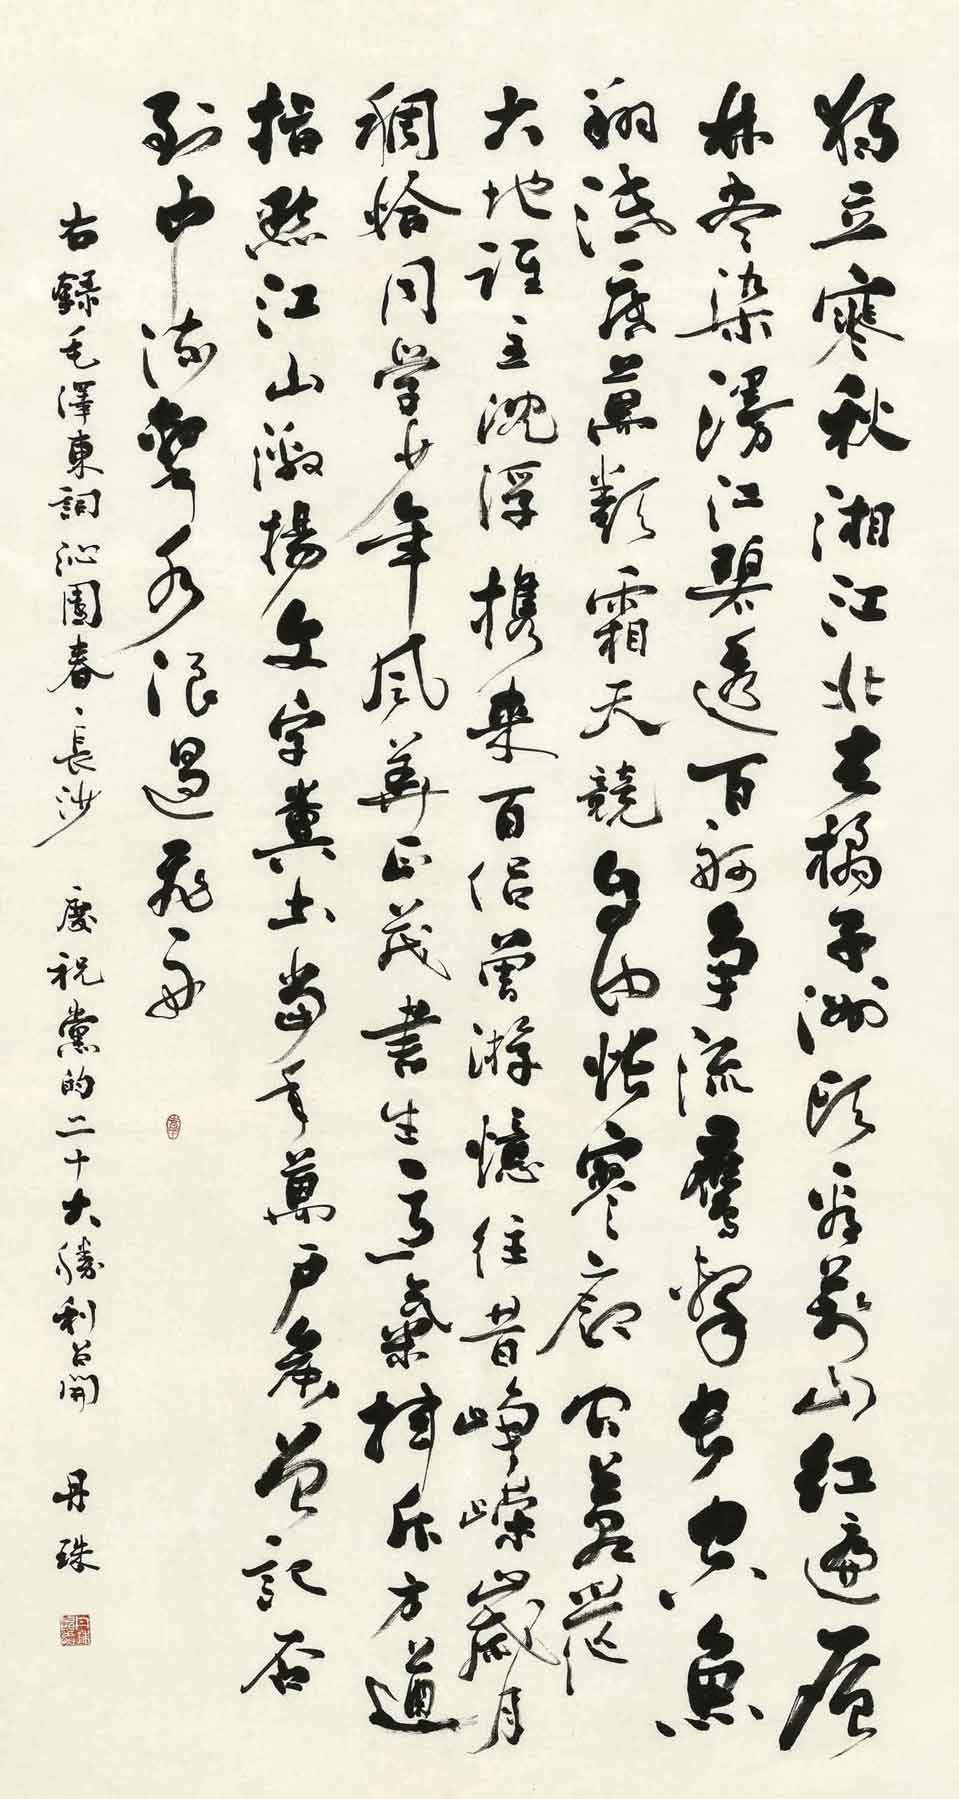 獨立寒秋湘江北去橘子洲頭看萬山紅遍層
林尽染漫江碧透百舸争流鷹擊長空魚
翔淺底萬類霜天競自由悵寥廓問蒼茫
大地誰主沈浮携來百侣曾游憶往昔崢嶸歲月
稠恰同学少年風華正茂書生意氣揮斥方遒
指點江山激揚文字糞土當年萬户侯曾記否
到中流擊水浪遏飛舟
右録毛澤東詞沁園春、長沙 慶祝黨的二十大勝利召開 丹珠